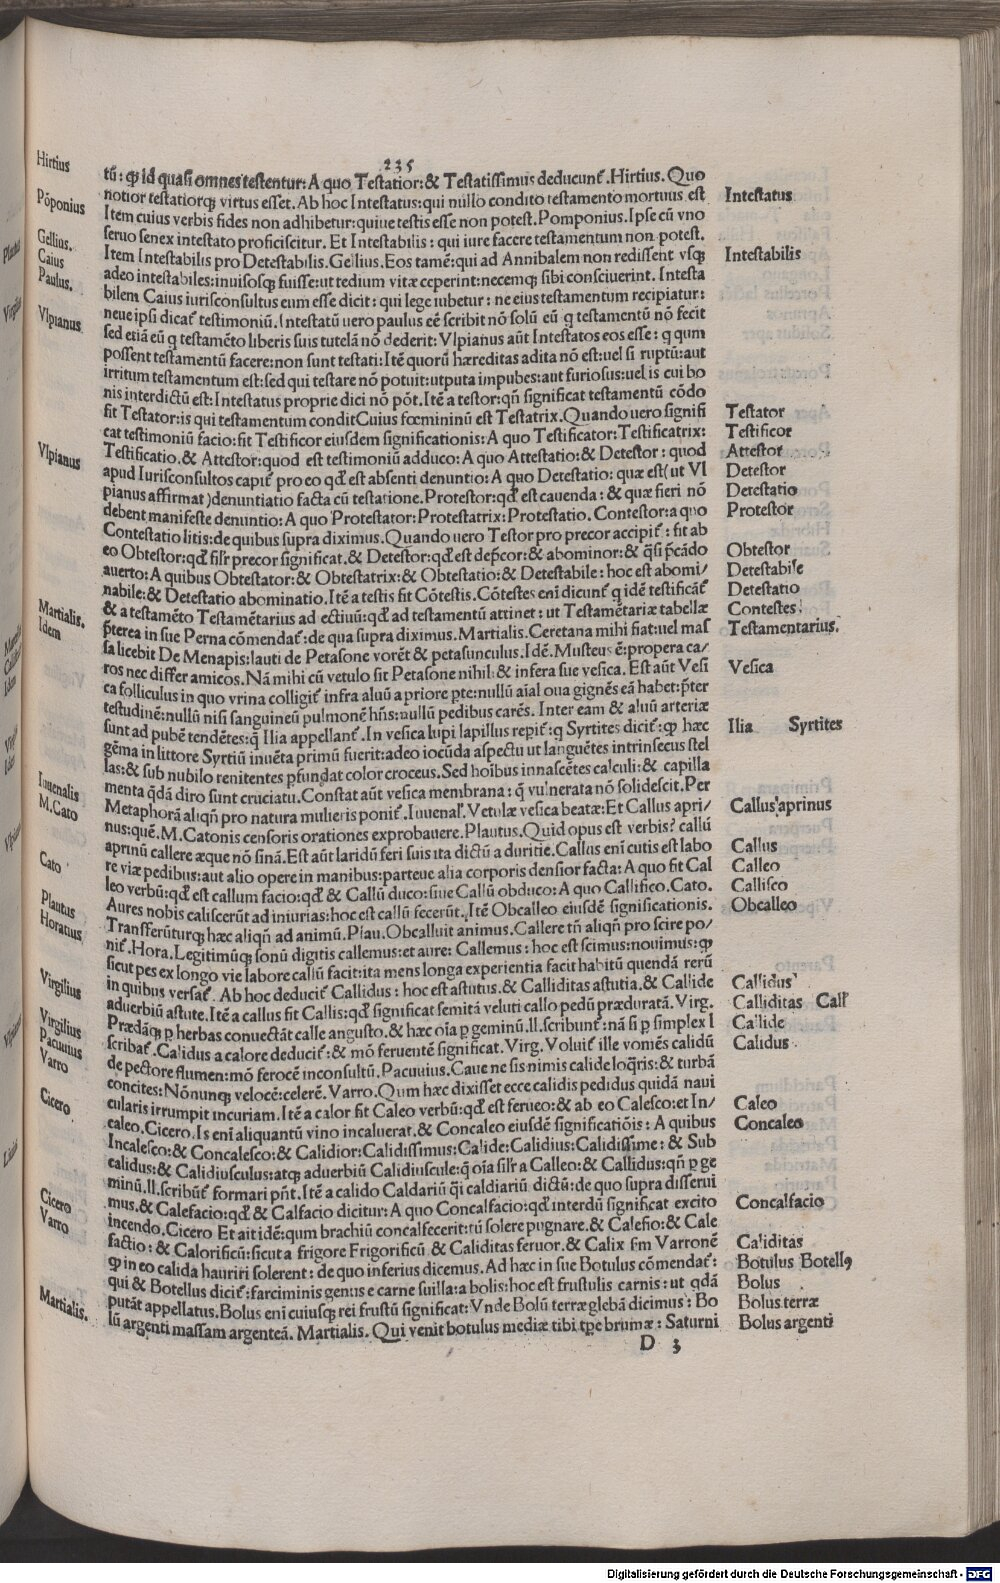 235
tū: ꝙ id quasi omnes testentur: A quo Testatior: & Testatissimus deducunt᷑. Hirtius. Quo
notior testatiorq; virtus esset. Ab hoc Intestatus: qui nullo condito testamento mortuus est
Item cuius verbis fides non adhibetur: quiue testis esse non potest. Pomponius. Ipse cū vno
seruo senex intestato proficiscitur. Et Intestabilis: qui iure facere testamentum non potest.
Item Intestabilis pro Detestabilis. Gellius. Eos tamē: qui ad Annibalem non redissent vsq;
adeo intestabiles: inuisosq; fuisse: ut tedium vitæ ceperint: necemq; sibi consciuerint. Intesta
bilem Caius iurisconsultus eum esse dicit: qui lege iubetur: ne eius testamentum recipiatur:
neue ipsi dicat᷑ testimoniū. Intestatū uero paulus eē scribit nō solū eū q testamentū nō fecit
sed etiā eū q testamēto liberis suis tutelā nō dederit: Vlpianus aūt Intestatos eos esse: q qum
possent testamentū facere: non sunt testati: Itē quorū hæreditas adita nō est: uel si ruptū: aut
irritum testamentum est: sed qui testare nō potuit: utputa impubes: aut furiosus: uel is cui bo
nis interdictū est: Intestatus proprie dici nō pōt. Itē a testor: qn̄ significat testamentū cōdo
fit Testator: is qui testamentum condit Cuius fœmininū est Testatrix. Quando uero signifi
cat testimoniū facio: fit Testificor eiusdem significationis: A quo Testificator: Testificatrix:
Testificatio. & Attestor: quod est testimoniū adduco: A quo Attestatio: & Detestor: quod
apud Iurisconsultos capit᷑ pro eo qd̄ est absenti denuntio: A quo Detestatio: quæ est (ut Vl
pianus affirmat) denuntiatio facta cū testatione. Protestor: qd̄ est cauenda: & quæ fieri nō
debent manifeste denuntio: A quo Protestator: Protestatrix: Protestatio. Contestor: a quo
Contestatio litis: de quibus supra diximus. Quando uero Testor pro precor accipit᷑: fit ab
eo Obtestor: qd̄ silr precor significat. & Detestor: qd̄ est dep̄cor: & abominor: & q̄si p̄cādo
auerto: A quibus Obtestator: & Obtestatrix: & Obtestatio: & Detestabile: hoc est abomi/
nabile: & Detestatio abominatio. Itē a testis fit Cōtestis. Cōtestes enī dicunt᷑ q idē testificāt᷑
& a testamēto Testamētarius ad ectiuū: qd̄ ad testamentū attinet: ut Testamētariæ tabellæ
p̄terea in sue Perna cōmendat᷑: de qua supra diximus. Martialis. Ceretana mihi fiat: uel mas
sa licebit De Menapis: lauti de Petasone vorēt & petasunculus. Idē. Musteus ē: propera ca/
ros nec differ amicos. Nā mihi cū vetulo sit Petasone nihil: & infera sue vesica. Est aūt Vesi
ca folliculus in quo vrina colligit᷑ infra aluū a priore pte: nullū aīal oua gignēs eā habet: p̄ter
testudinē: nullū nisi sanguineū pulmonē hn̄s: nullū pedibus carēs. Inter eam & aluū arteriæ
sunt ad pubē tendētes: q̄ Ilia appellant᷑. In vesica lupi lapillus repit᷑: q Syrtites dicit᷑: ꝙ hæc
gēma in littore Syrtiū inuēta primū fuerit: adeo iocūda aspectu ut languētes intrinsecus stel
las: & sub nubilo renitentes pfundat color croceus. Sed hoībus innascētes calculi: & capilla
menta qdā diro sunt cruciatu. Constat aūt vesica membrana: q̄ vulnerata nō solidescit. Per
Metaphorā aliqn̄ pro natura mulieris ponit᷑. Iuuenal᷑. Vetulæ vesica beatæ: Et Callus apri/
nus: quē. M. Catonis censoris orationes exprobauere. Plautus. Quid opus est verbis? callū
aprinū callere æque nō sinā. Est aūt laridū feri suis ita dictū a duritie. Callus enī cutis est labo
re viæ pedibus: aut alio opere in manibus: parteue alia corporis densior facta: A quo fit Cal
leo verbū: qd̄ est callum facio: qd̄ & Callū duco: siue Callū obduco: A quo Callifico. Cato.
Aures nobis caliscerūt ad iniurias: hoc est callū fecerūt. Itē Obcalleo eiusdē significationis.
Transferūturq; hæc aliqn̄ ad animū. Plau. Obcalluit animus. Callere tn̄ aliqn̄ pro scire po/
nit᷑. Hora. Legitimūq; sonū digitis callemus: et aure: Callemus: hoc est scimus: nouimus: ꝙ
sicut pes ex longo vie labore callū facit: ita mens longa experientia facit habitū quendā rerū
in quibus versat᷑. Ab hoc deducit᷑ Callidus: hoc est astutus. & Calliditas astutia. & Callide
aduerbiū astute. Itē a callus fit Callis: qd̄ significat semitā veluti callo pedū præduratā. Virg.
Prædāq; p herbas conuectāt calle angusto. & hæc oīa p geminū. ll. scribunt᷑: nā si p simplex l
scribat᷑. Calidus a calore deducit᷑: & mō feruentē significat. Virg. Voluit᷑ ille vomēs calidū
de pectore flumen: mō ferocē inconsultū. Pacuuius. Caue ne sis nimis calide loq̄ris: & turbā
concites: Nōnunq; velocē: celerē. Varro. Qum hæc dixisset ecce calidis pedidus quidā naui
cularis irrumpit incuriam. Itē a calor fit Caleo verbū: qd̄ est ferueo: & ab eo Calesco: et In/
caleo. Cicero. Is enī aliquantū vino incaluerat. & Concaleo eiusdē significatiōis: A quibus
Incalesco: & Concalesco: & Calidior: Calidissimus: Calide: Calidius: Calidissime: & Sub
calidus: & Calidiusculus: atq; aduerbiū Calidiuscule: q̄ oīa silr a Calleo: & Callidus: qn̄ p ge
minū. ll. scribūt᷑ formari pn̄t. Itē a calido Caldariū q̄i caldiariū dictū: de quo supra disserui
mus. & Calefacio: qd̄ & Calfacio dicitur: A quo Concalfacio: qd̄ interdū significat excito
incendo. Cicero Et ait idē: qum brachiū concalfecerit: tū solere pugnare. & Calefio: & Cale
factio: & Calorificū: sicut a frigore Frigorificū & Caliditas feruor. & Calix fm Varronē
ꝙ in eo calida hauriri solerent: de quo inferius dicemus. Ad hæc in sue Botulus cōmendat᷑:
qui & Botellus dicit᷑: farciminis genus e carne suilla: a bolis: hoc est frustulis carnis: ut qdā
putāt appellatus. Bolus enī cuiusq; rei frustū significat: Vnde Bolū terræ glebā dicimus: Bo
lū argenti massam argenteā. Martialis. Qui venit botulus mediæ tibi tp̄e brumæ: Saturni
D 3
Hirtius
Pōponius
Gellius.
Caius
Paulus.
Vlpianus
Vlpianus
Martialis.
Idem
Iuuenalis
M. Cato
Cato
Plautus
Horatius
Virgilius
Virgilius
Pacuuius
Varro
Cicero
Cicero
Varro
Martialis.
Intestatus
Intestabilis
Testator
Testificor
Attestor
Detestor
Detestatio
Protestor
Obtestor
Detestabile
Detestatio
Contestes.
Testamentarius.
Vesica
Ilia Syrtites
Callus aprinus
Callus
Calleo
Callisco
Obcalleo
Callidus
Calliditas Call᷑
Calide
Calidus.
Caleo
Concaleo
Concalfacio
Caliditas
Botulus Botellꝰ
Bolus
Bolus terræ
Bolus argenti
Digitalisierung gefördert durch die Deutsche Forschungsgemeinschaft - DFG